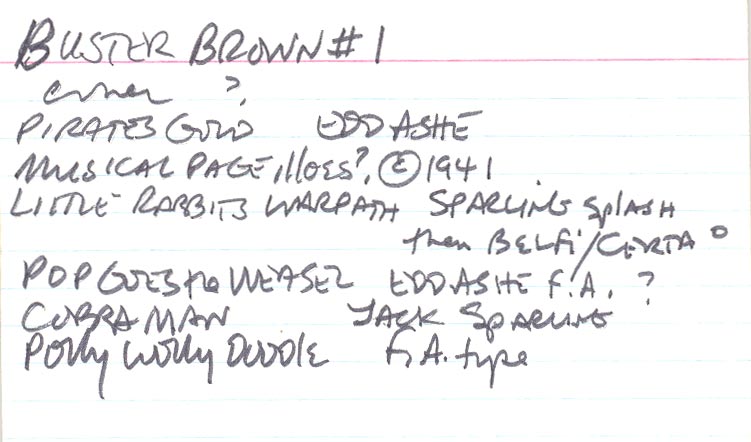 BUSTER BROWN #1
cover ?
PIRATES GOLD EDD ASHE
MUSICAL PAGE, illoes?, © 1941.
LITTLE RABBITS WARPATH SPARLING SPLASH
then BELFI/CERTA
POP GOES the WEASEL EDD ASHE F.A. ?
COBRA MAN JACK SPARLING
POLLY WOLLY DOODLE F.A. type